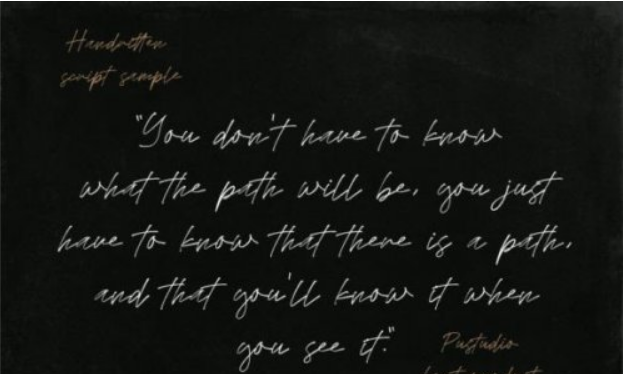 Handwritten
script sample
"You don't have to know
what the path will be, you just
have to know that there is a path,
and that you'll know it when
you see it."
Pustudio